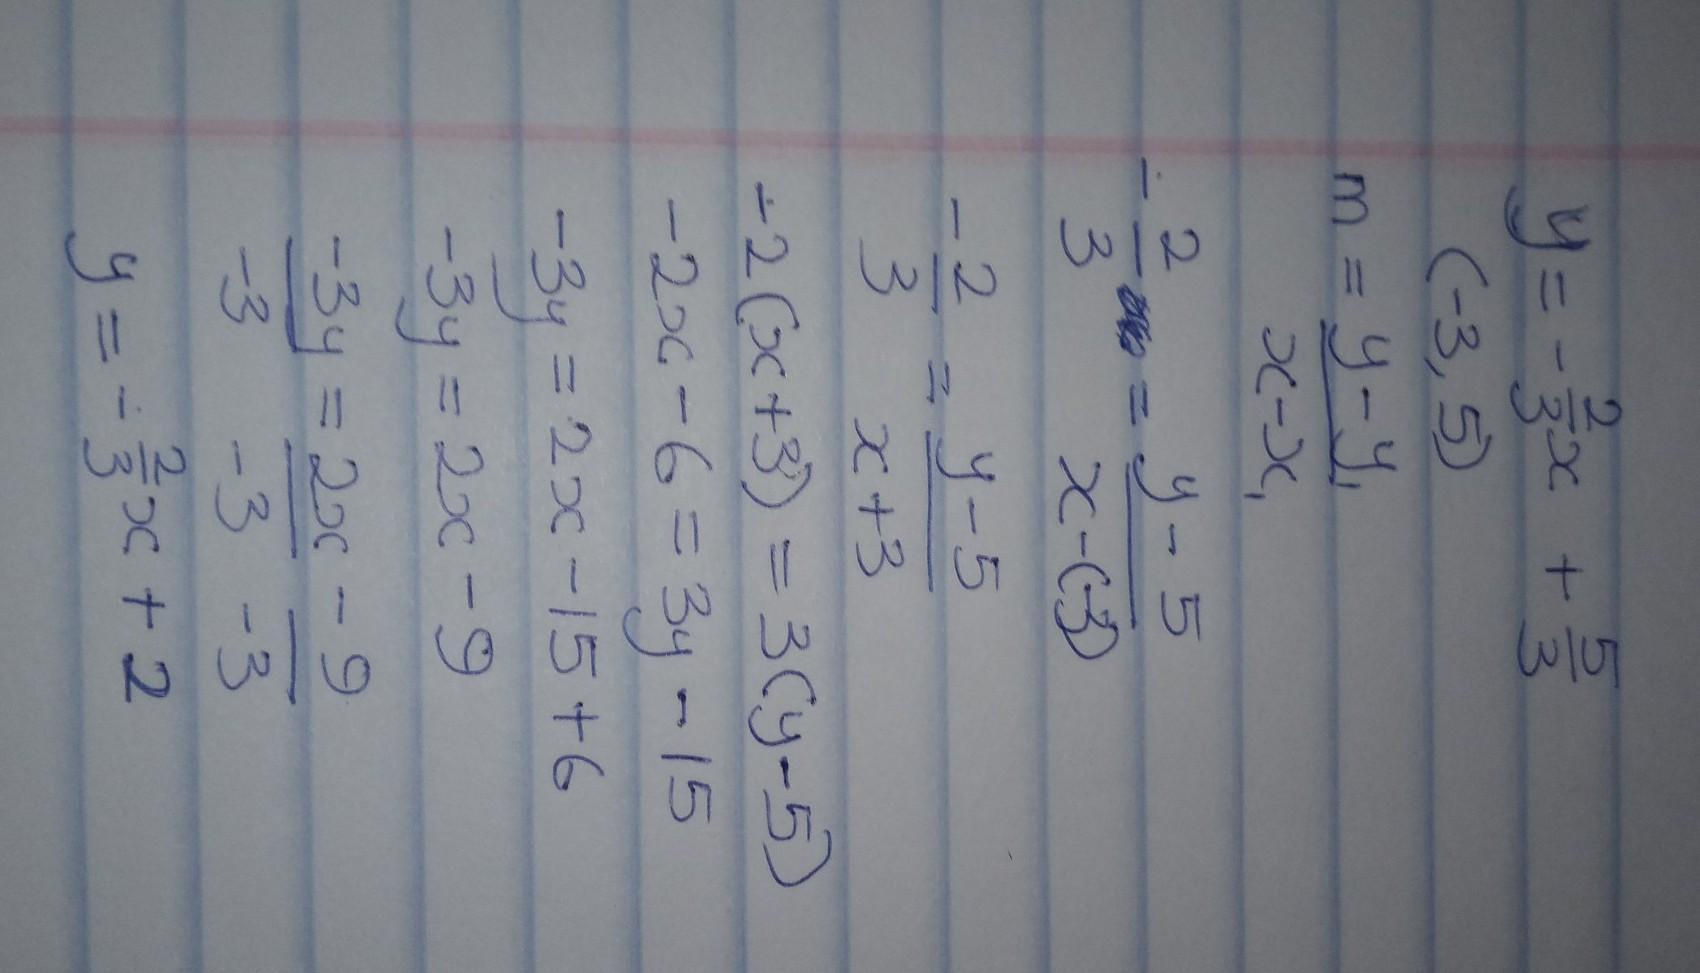 y = -2/3x + 5/3
(-3, 5)
m = y - y₁
x - x₁
-2/3 = y - 5
x - (-3)
-2/3 = y - 5
x + 3
-2(x + 3) = 3(y - 5)
-2x - 6 = 3y - 15
-3y = 2x - 15 + 6
-3y = 2x - 9
-3y = 2x - 9
-3 -3 -3
y = -2/3x + 2